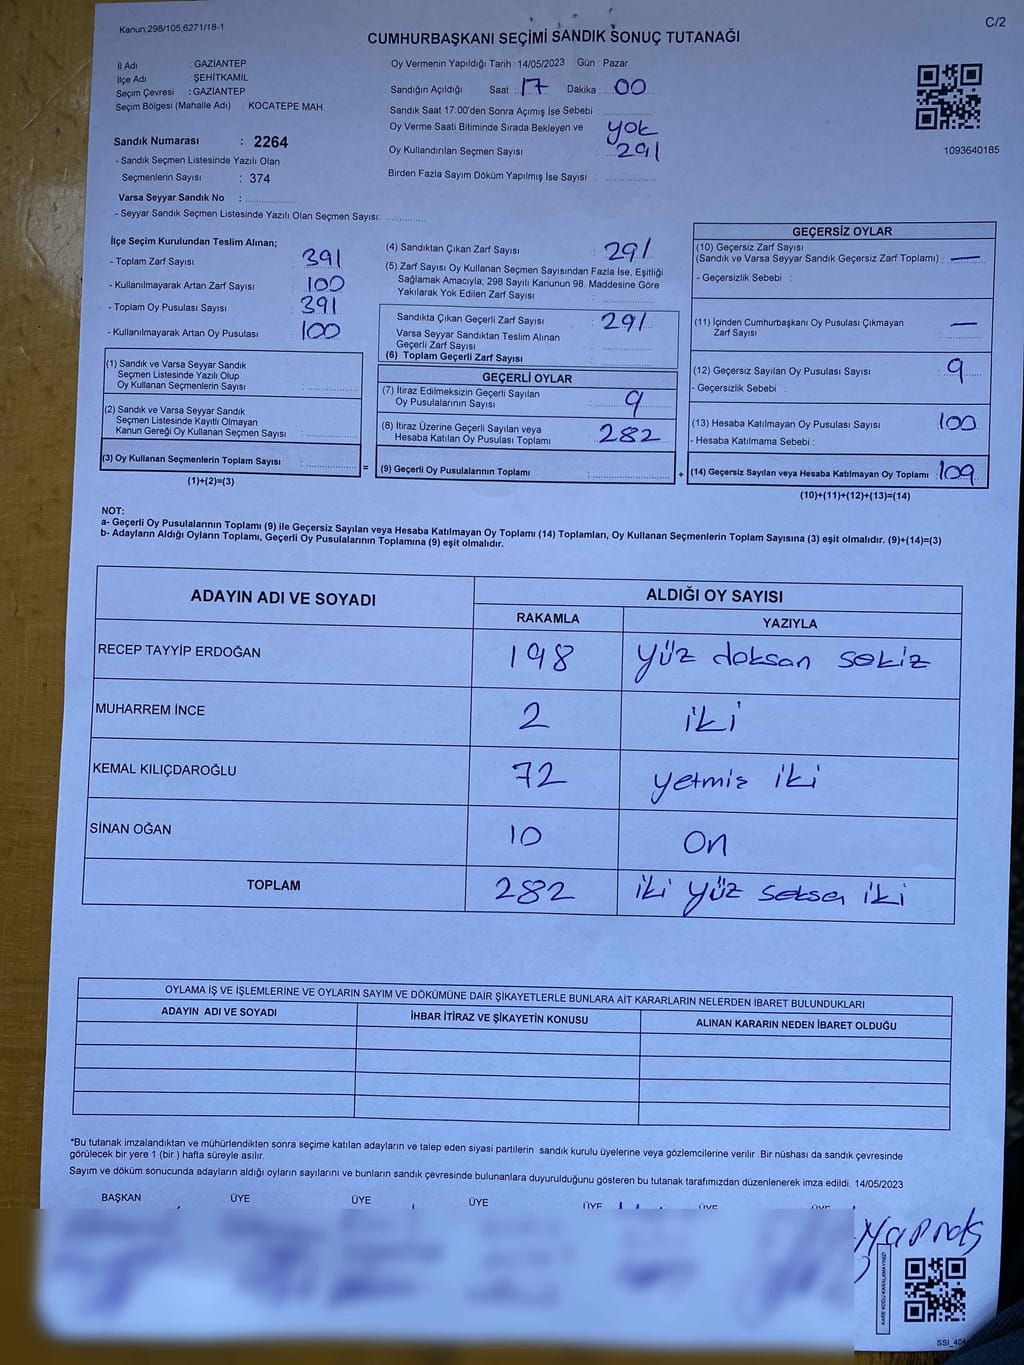 Kanun,298/105,6271/18-1
C/2
CUMHURBAŞKANI SEÇİMİ SANDIK SONUÇ TUTANAĞI
İl Adı : GAZİANTEP
İlçe Adı : ŞEHİTKAMİL
Seçim Çevresi : GAZİANTEP
Seçim Bölgesi (Mahalle Adı) : KOCATEPE MAH.
Sandık Numarası : 2264
- Sandık Seçmen Listesinde Yazılı Olan
Seçmenlerin Sayısı : 374
Varsa Seyyar Sandık No :
- Seyyar Sandık Seçmen Listesinde Yazılı Olan Seçmen Sayısı:
Oy Vermenin Yapıldığı Tarih : 14/05/2023 Gün : Pazar
Sandığın Açıldığı Saat : 17 Dakika : 00
Sandık Saat 17:00'den Sonra Açımış İse Sebebi :
Oy Verme Saati Bitiminde Sırada Bekleyen ve yok
Oy Kullandırılan Seçmen Sayısı : 291
Birden Fazla Sayım Döküm Yapılmış İse Sayısı :
1093640185
İlçe Seçim Kurulundan Teslim Alınan;
- Toplam Zarf Sayısı : 391
- Kullanılmayarak Artan Zarf Sayısı : 100
- Toplam Oy Pusulası Sayısı : 391
- Kullanılmayarak Artan Oy Pusulası : 100
(1) Sandık ve Varsa Seyyar Sandık
Seçmen Listesinde Yazılı Olup
Oy Kullanan Seçmenlerin Sayısı :
(2) Sandık ve Varsa Seyyar Sandık
Seçmen Listesinde Kayıtlı Olmayan
Kanun Gereği Oy Kullanan Seçmen Sayısı :
(3) Oy Kullanan Seçmenlerin Toplam Sayısı : =
(1)+(2)=(3)
(4) Sandıktan Çıkan Zarf Sayısı : 291
(5) Zarf Sayısı Oy Kullanan Seçmen Sayısından Fazla İse, Eşitliği
Sağlamak Amacıyla; 298 Sayılı Kanunun 98. Maddesine Göre
Yakılarak Yok Edilen Zarf Sayısı :
Sandıkta Çıkan Geçerli Zarf Sayısı : 291
Varsa Seyyar Sandıktan Teslim Alınan
Geçerli Zarf Sayısı :
(6) Toplam Geçerli Zarf Sayısı :
GEÇERLİ OYLAR
(7) İtiraz Edilmeksizin Geçerli Sayılan
Oy Pusulalarının Sayısı : 9
(8) İtiraz Üzerine Geçerli Sayılan veya
Hesaba Katılan Oy Pusulası Toplamı : 282
(9) Geçerli Oy Pusulalarının Toplamı : +
GEÇERSİZ OYLAR
(10) Geçersiz Zarf Sayısı
(Sandık ve Varsa Seyyar Sandık Geçersiz Zarf Toplamı) : —
- Geçersizlik Sebebi :
(11) İçinden Cumhurbaşkanı Oy Pusulası Çıkmayan
Zarf Sayısı : —
(12) Geçersiz Sayılan Oy Pusulası Sayısı : 9
- Geçersizlik Sebebi :
(13) Hesaba Katılmayan Oy Pusulası Sayısı : 100
- Hesaba Katılmama Sebebi :
(14) Geçersiz Sayılan veya Hesaba Katılmayan Oy Toplamı : 109
(10)+(11)+(12)+(13)=(14)
NOT:
a- Geçerli Oy Pusulalarının Toplamı (9) ile Geçersiz Sayılan veya Hesaba Katılmayan Oy Toplamı (14) Toplamları, Oy Kullanan Seçmenlerin Toplam Sayısına (3) eşit olmalıdır. (9)+(14)=(3)
b- Adayların Aldığı Oyların Toplamı, Geçerli Oy Pusulalarının Toplamına (9) eşit olmalıdır.
ADAYIN ADI VE SOYADI ALDIĞI OY SAYISI
RAKAMLA YAZIYLA
RECEP TAYYİP ERDOĞAN 198 yüz doksan sekiz
MUHARREM İNCE 2 iki
KEMAL KILIÇDAROĞLU 72 yetmiş iki
SİNAN OĞAN 10 On
TOPLAM 282 iki yüz seksen iki
OYLAMA İŞ VE İŞLEMLERİNE VE OYLARIN SAYIM VE DÖKÜMÜNE DAİR ŞİKAYETLERLE BUNLARA AİT KARARLARIN NELERDEN İBARET BULUNDUKLARI
ADAYIN ADI VE SOYADI İHBAR İTİRAZ VE ŞİKAYETİN KONUSU ALINAN KARARIN NEDEN İBARET OLDUĞU
*Bu tutanak imzalandıktan ve mühürlendikten sonra seçime katılan adayların ve talep eden siyasi partilerin sandık kurulu üyelerine veya gözlemcilerine verilir .Bir nüshası da sandık çevresinde
görülecek bir yere 1 (bir ) hafta süreyle asılır.
Sayım ve döküm sonucunda adayların aldığı oyların sayılarını ve bunların sandık çevresinde bulunanlara duyurulduğunu gösteren bu tutanak tarafımızdan düzenlenerek imza edildi. 14/05/2023
BAŞKAN ÜYE ÜYE ÜYE ÜYE ÜYE ÜYE
KARE KODU KARALAMAYINIZ!